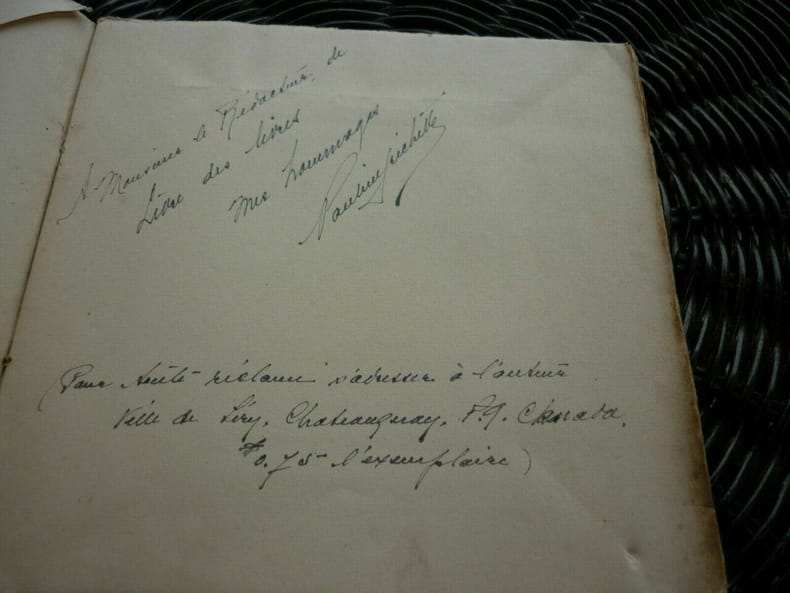 A Monsieur le Rédacteur de
Livre des livres
mes hommages
Pauline Fréchette
(Pour toute réclame s'adresser à l'auteur
Ville de Léry, Chateauguay, P.Q. Canada.
$0.75 l'exemplaire)